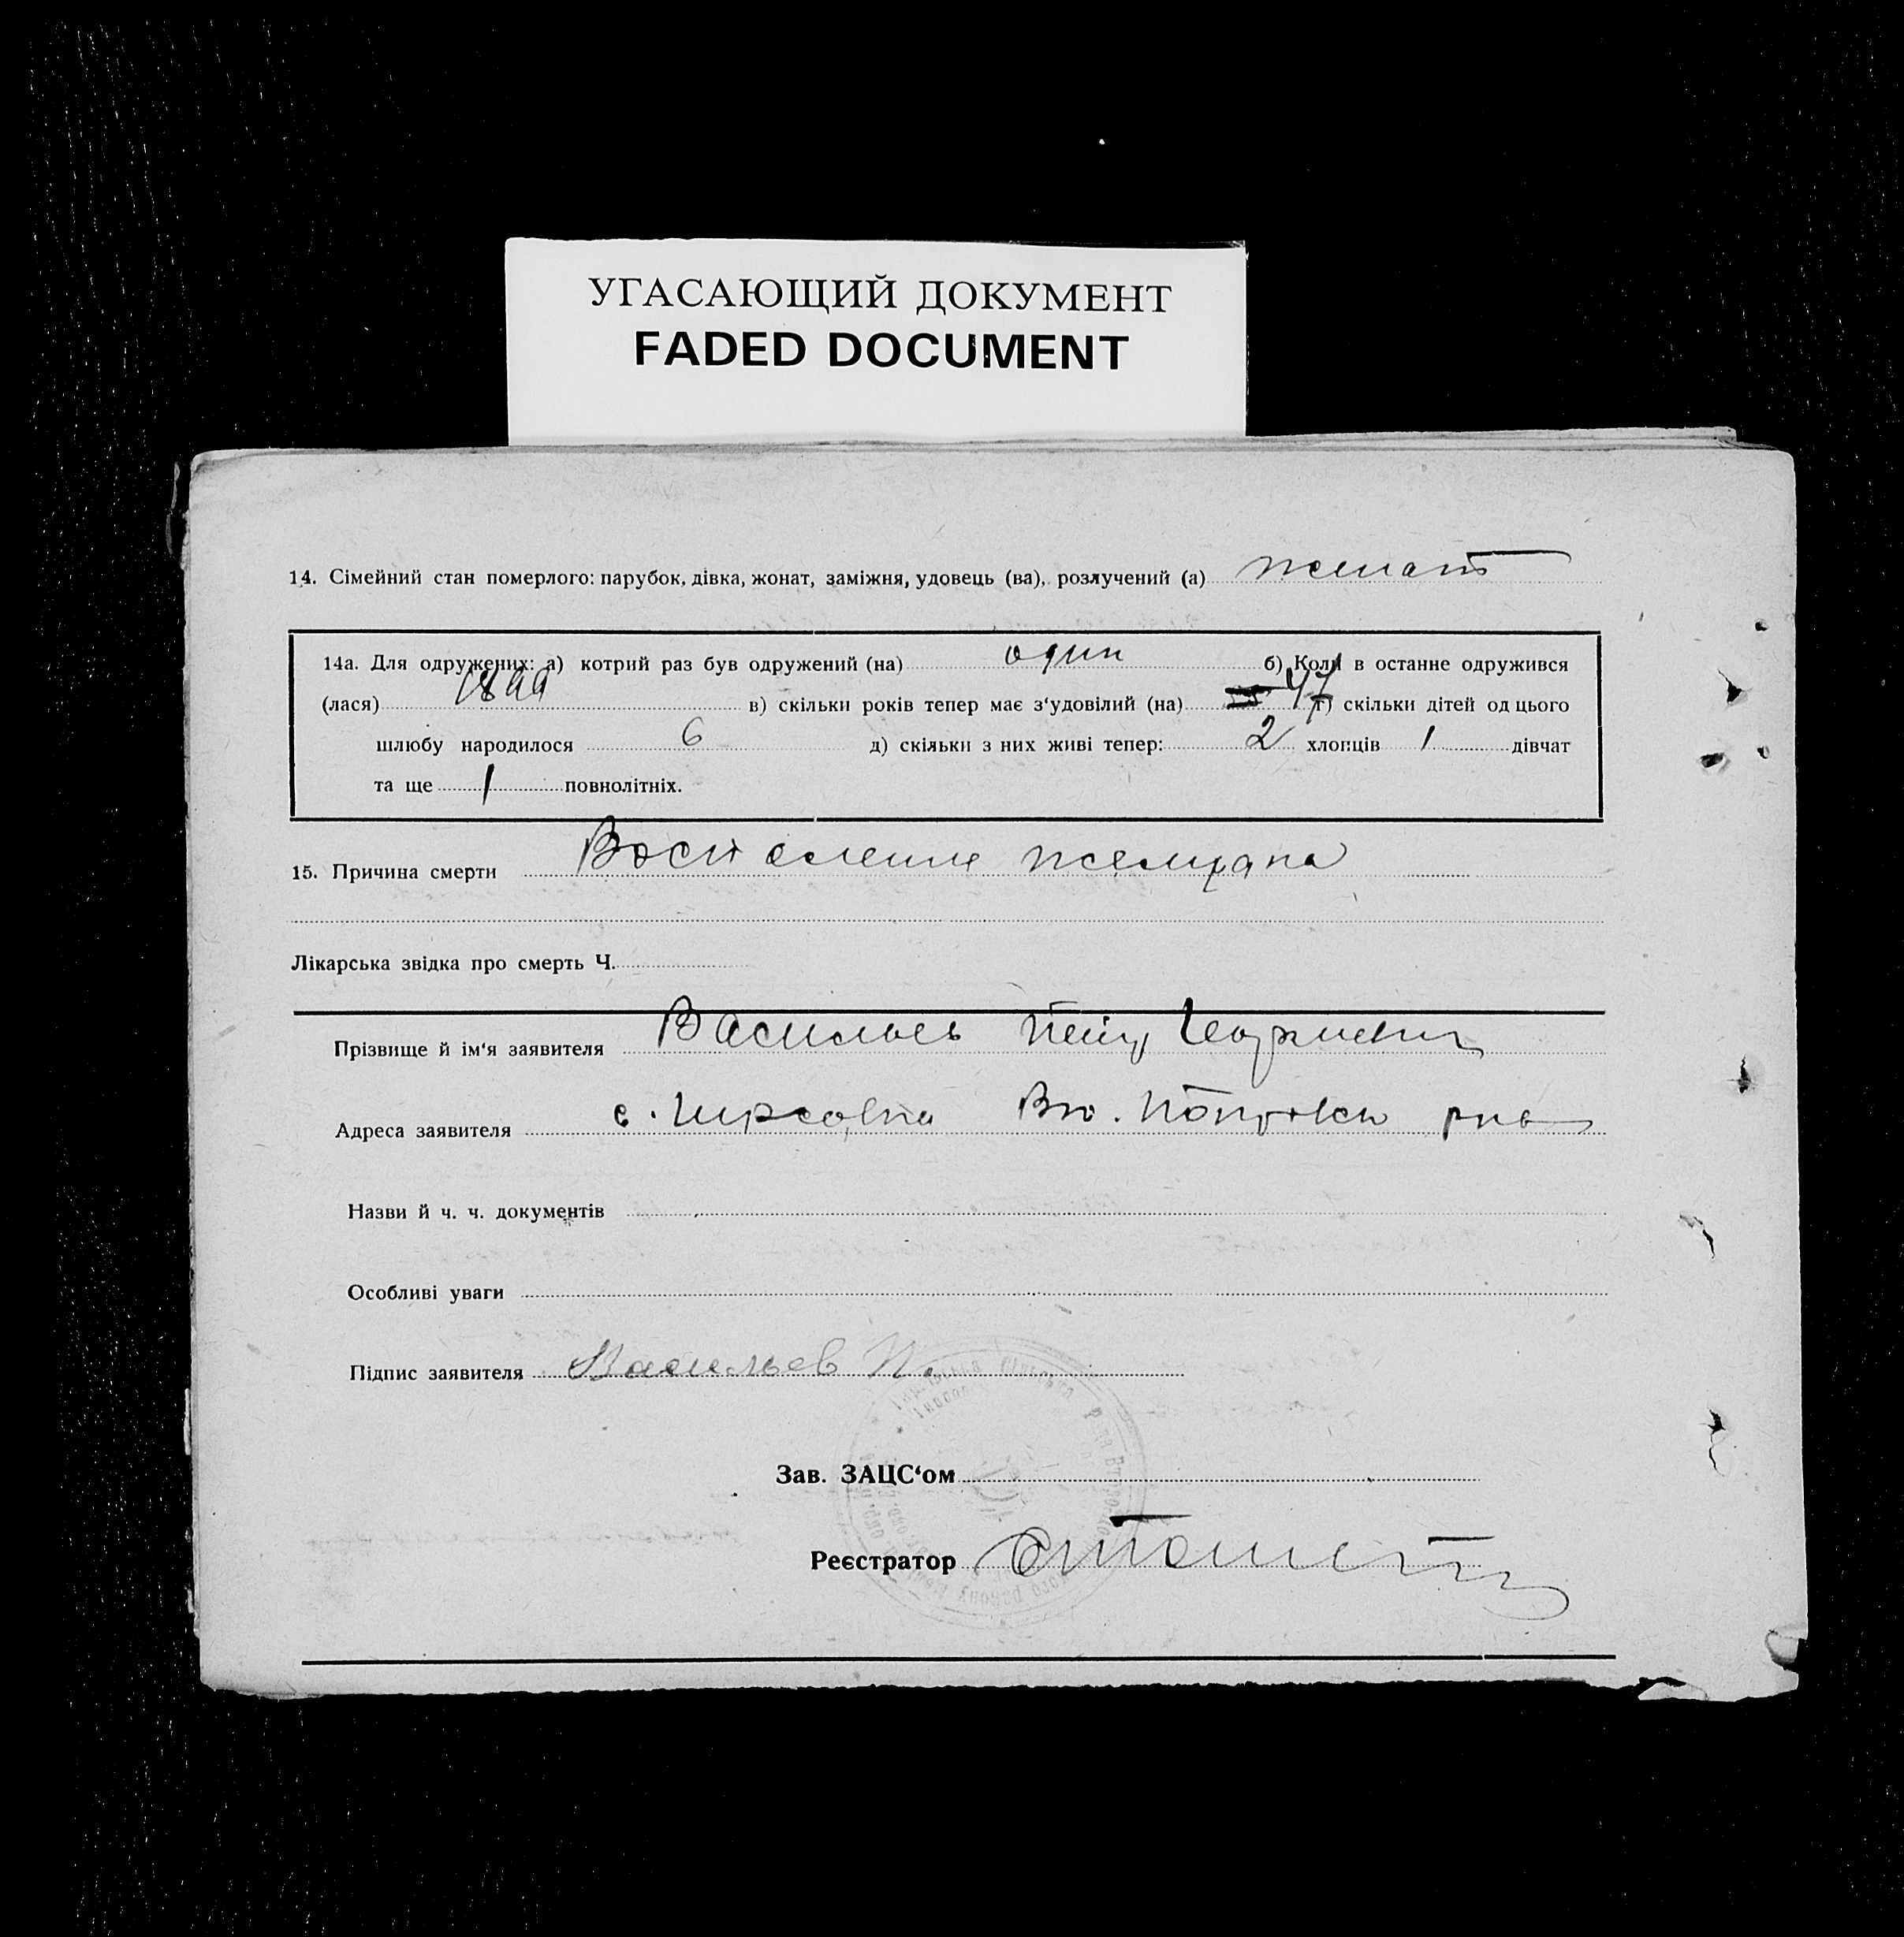 УГАСАЮЩИЙ ДОКУМЕНТ
FADED DOCUMENT
14. Сімейний стан померлого: парубок, дівка, жонат, заміжня, удовець (ва), розлучений (а) женат
14а. Для одружених: а) котрий раз був одружений (на) один б) Коли в останнє одружився
(лася) 1899 в) скільки років тепер має з‘удовілий (на) 47 г) скільки дітей од цього
шлюбу народилося 6 д) скільки з них живі тепер: 2 хлопців 1 дівчат
та ще 1 повнолітніх.
15. Причина смерти Воспаление желудка
Лікарська звідка про смерть Ч.
Прізвище й ім‘я заявителя Васильев Петр Георгиевич
Адреса заявителя с.
Назви й ч. ч. документів
Особливі уваги
Підпис заявителя Васильев П.
Зав. ЗАЦС‘ом
Реєстратор